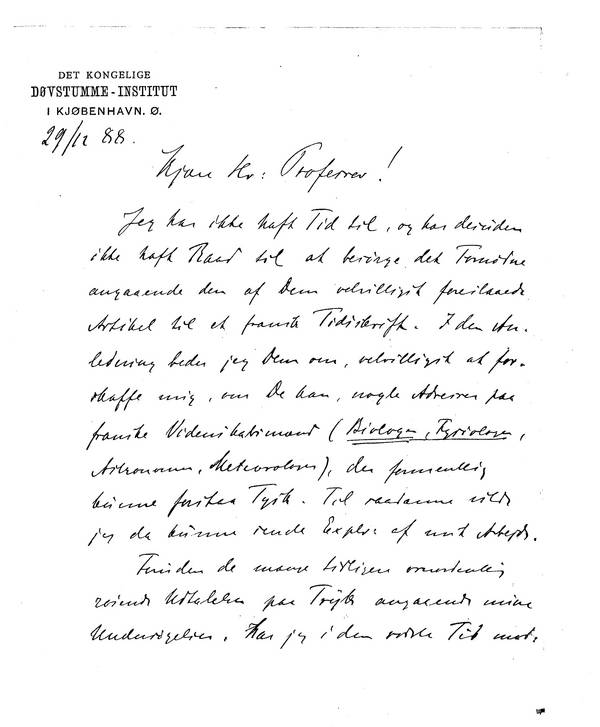 DET KONGELIGE
DØVSTUMME-INSTITUT
I KJØBENHAVN. Ø.
29/12 88.
Kjære Hr: Professor!
Jeg har ikke haft Tid til, og har desuden
ikke haft Raad til at besørge det Fornødne
angaaende den af Dem velvilligst foreslaaede
Artikel til et fransk Tidsskrift. I den An-
ledning beder jeg Dem om, velvilligst at for-
skaffe mig, om De kan, nogle Adresser paa
franske Videnskabsmænd (Biologer, Fysiologer,
Astronomer, Meteorologer), der formentlig
kunne forstaa Tysk. Til saadanne vilde
jeg da kunne sende Explr: af mit Arbejde.
Foruden de mange tidligere overordentlig
rosende Udtalelser paa Tryk angaaende mine
Undersøgelser, har jeg i den sidste Tid mod-